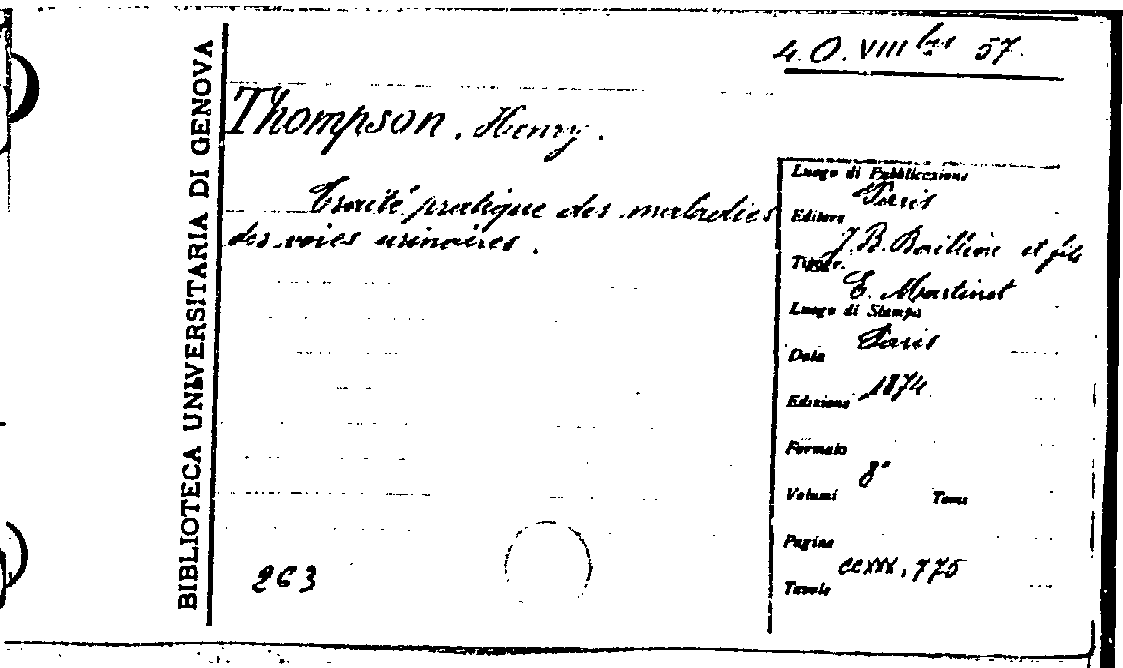 BIBLIOTECA UNIVERSITARIA DI GENOVA
4. O. VIII bis 57.
Thompson, Henry.
Traité pratique des maladies
des voies urinaires.
263
Luogo di Pubblicazione
Paris
Editore
J. B. Baillière et fils
Tipogr.
E. Martinet
Luogo di Stampa
Paris
Data
1874
Edizione
Formato
8°
Volumi Tomi
Pagine
CCXXX, 775
Tavole